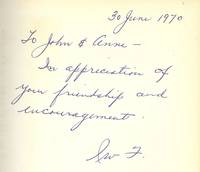 30 June 1970
To John & Anne –
In appreciation of
your friendship and
encouragement.